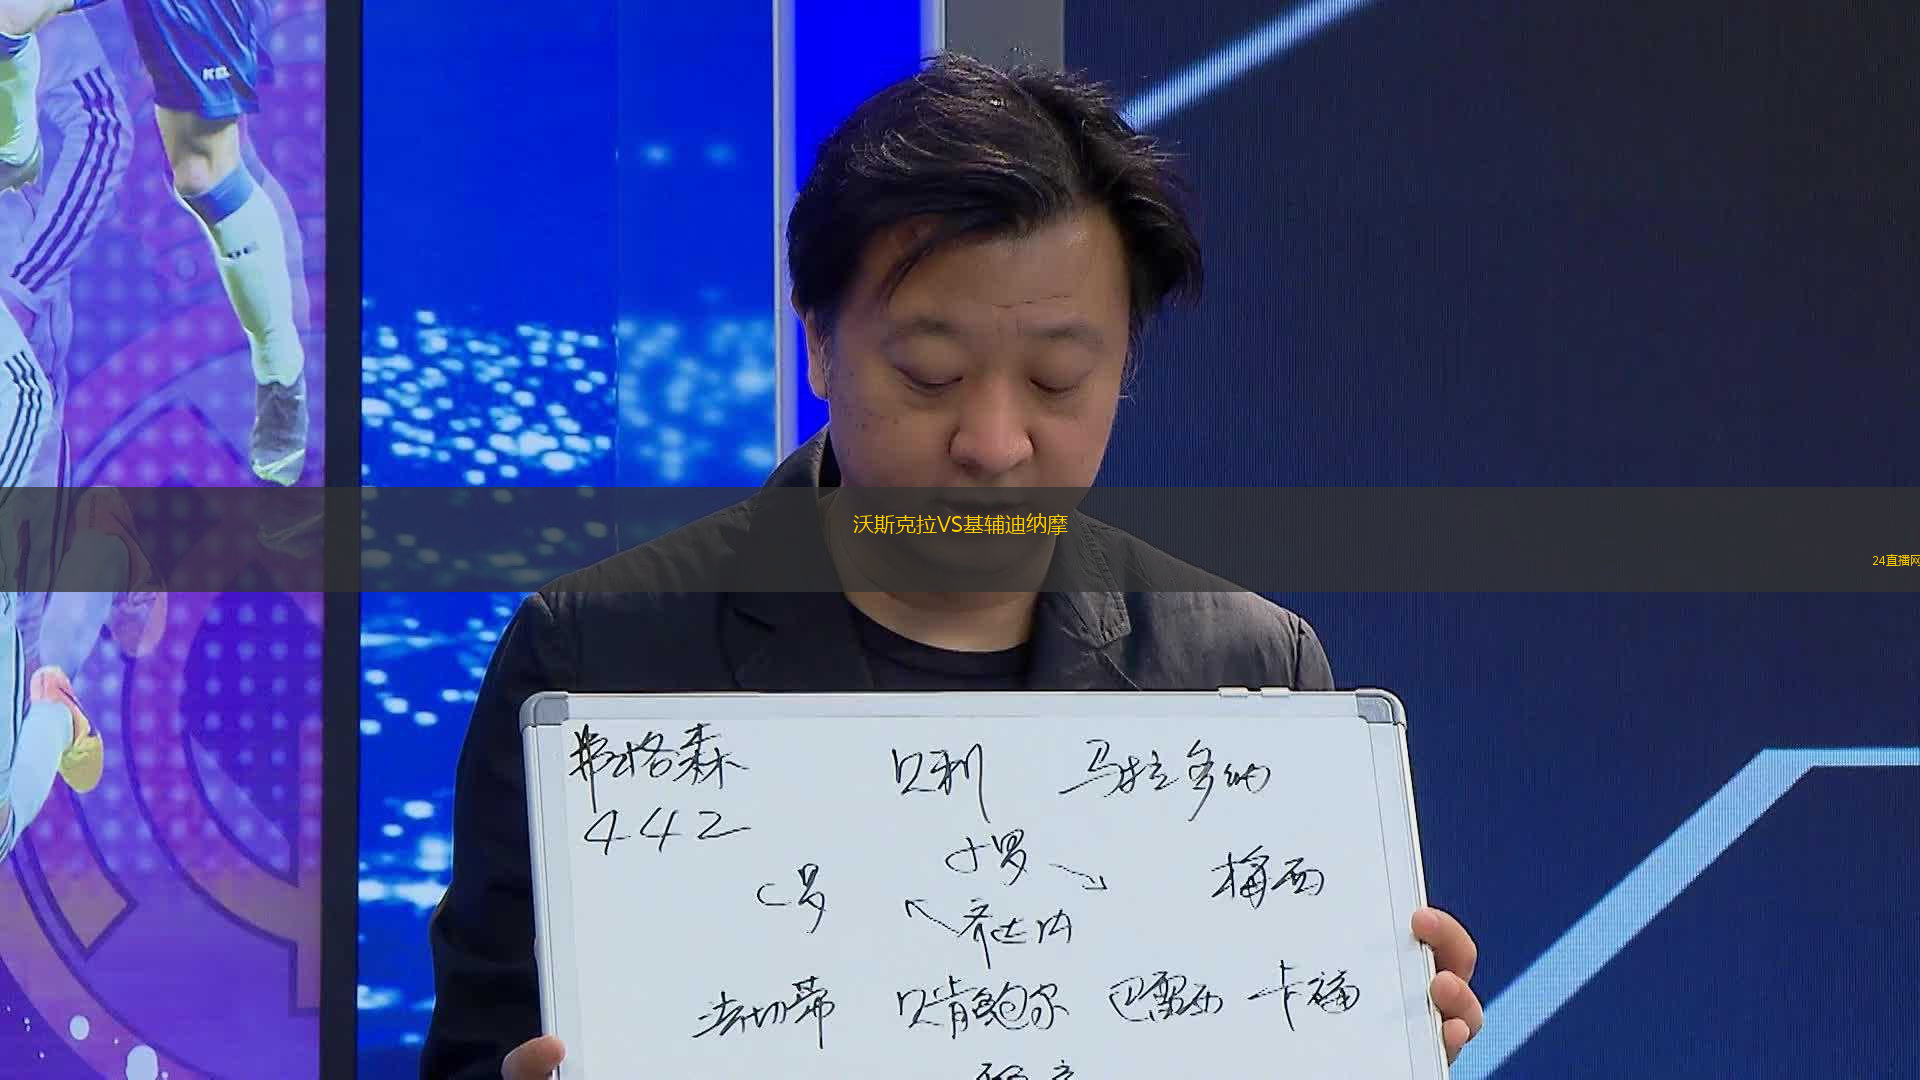 沃斯克拉VS基辅迪纳摩
24直播网
弗格森 贝利 马拉多纳
442
小罗
C罗 梅西
齐达内
法切蒂 贝肯鲍尔 巴雷西 卡福